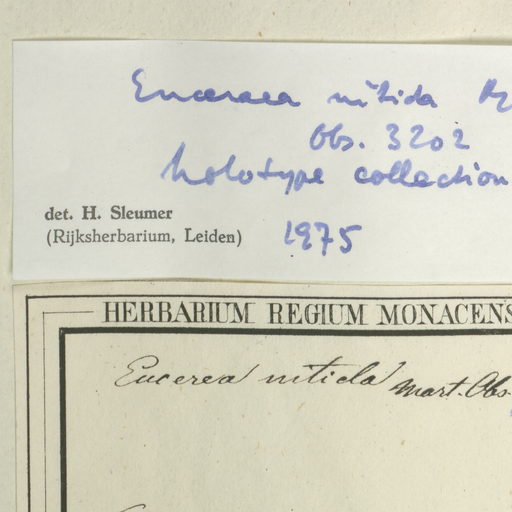 Euceraea nitida
Obs. 3202
holotype collection
det. H. Sleumer
(Rijksherbarium, Leiden) 1975
HERBARIUM REGIUM MONACENS
Eucerea nitida Mart. Obs.